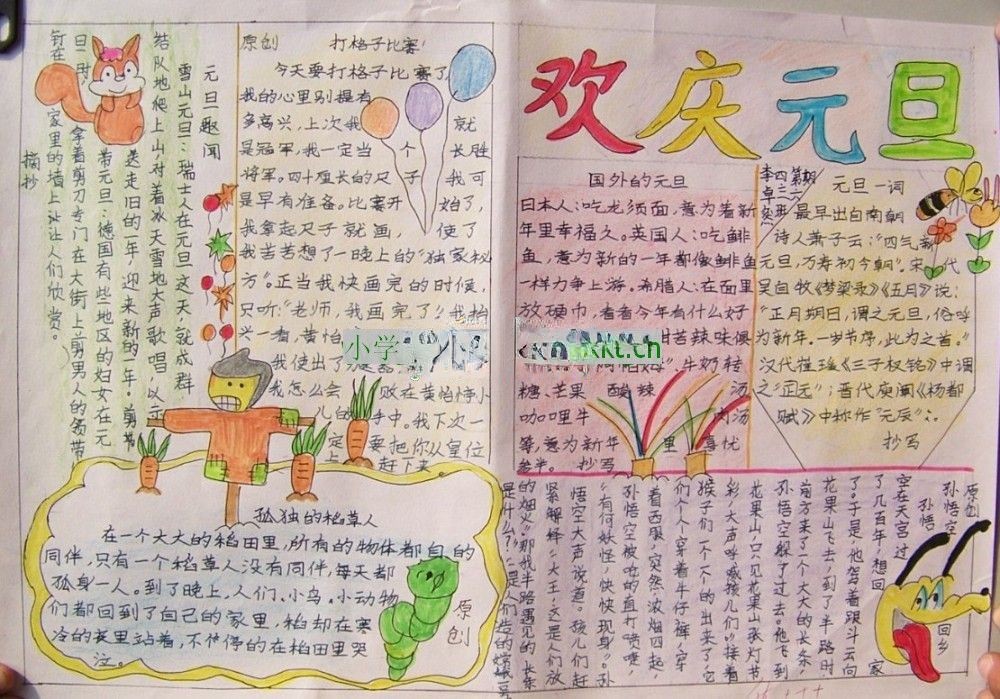 欢庆元旦
国外的元旦
日本人：吃龙须面，意为着新
年里幸福久。英国人：吃鲱
鱼，意为新的一年都像鲱鱼
一样力争上游。希腊人：在面里
放硬巾，看看今年有什么好
甜苦辣味俱
牛奶转
糖、芒果 酸辣 汤
咖哩牛 肉汤
等，意为新年 里 享忧
抄写
第期
四三二班
元旦一词
最早出自南朝
诗人萧子云：“四气新
元旦，万寿初今朝”。宋代
吴自牧《梦梁录》《五月》说：
“正月朔日，谓之元旦，俗呼
为新年。一岁节序，此为之首。”
汉代崔瑗《三子权铭》中谓
之“正元”；晋代庾阐《杨都
赋》中称作“元辰”…
抄写
原创 打格子比赛
今天要打格子比赛了，
我的心里别提有
多高兴，上次我 就
是冠军，我一定当 个 长胜
将军。四十厘长的尺 子 我可
是早有准备。比赛开 始了，
我拿起尺子就画， 使了
我苦苦想了一晚上的“独家秘
方”。正当我快画完的时候，
只听“老师，我画完了！”我抬
兴一看，黄怡
我使出了
我怎么会 败在黄怡婷小
儿的 手中。我下次一
定 要把你从皇位
上 赶下来。
元旦趣闻
雪山元旦：瑞士人在元旦这天，就成群
结队地爬上山，对着冰天雪地大声歌唱，以
送走旧的一年，迎来新的一年。剪带
带元旦：德国有些地区的妇女在元
旦时 拿着剪刀专门在大街上剪男人的领带
钉在 家里的墙上让让人们欣赏。
摘抄
孤独的稻草人
在一个大大的稻田里，所有的物体都自的
同伴，只有一个稻草人没有同伴，每天都
孤身一人。到了晚上，人们、小鸟、小动物
们都回到了自己的家里，稻却在寒
冷的夜里站着，不停停的在稻田里哭
泣。
原创
原创
孙悟空 回乡
孙悟空在天宫过
了几百年，想回 家
了。于是，他驾着跟斗云向
花果山飞去，到了半路时
前方来了一个大大的长条，
孙悟空躲了过去。他飞到
花果山，只见花果山张灯节
彩，大声呼喊孩儿们。接着
猴子们一个个的出来了，它
们个个穿着牛仔裤，穿
着西服，突然，浓烟四起，
孙悟空被呛的直打喷嚏，
“有何妖怪，快快现身”。孙
悟空大声说道。孩儿们赶
紧解释：“大王，这是人们放
的烟火。”那我半路遇见的长条
是什么？”
小学
kt.ch